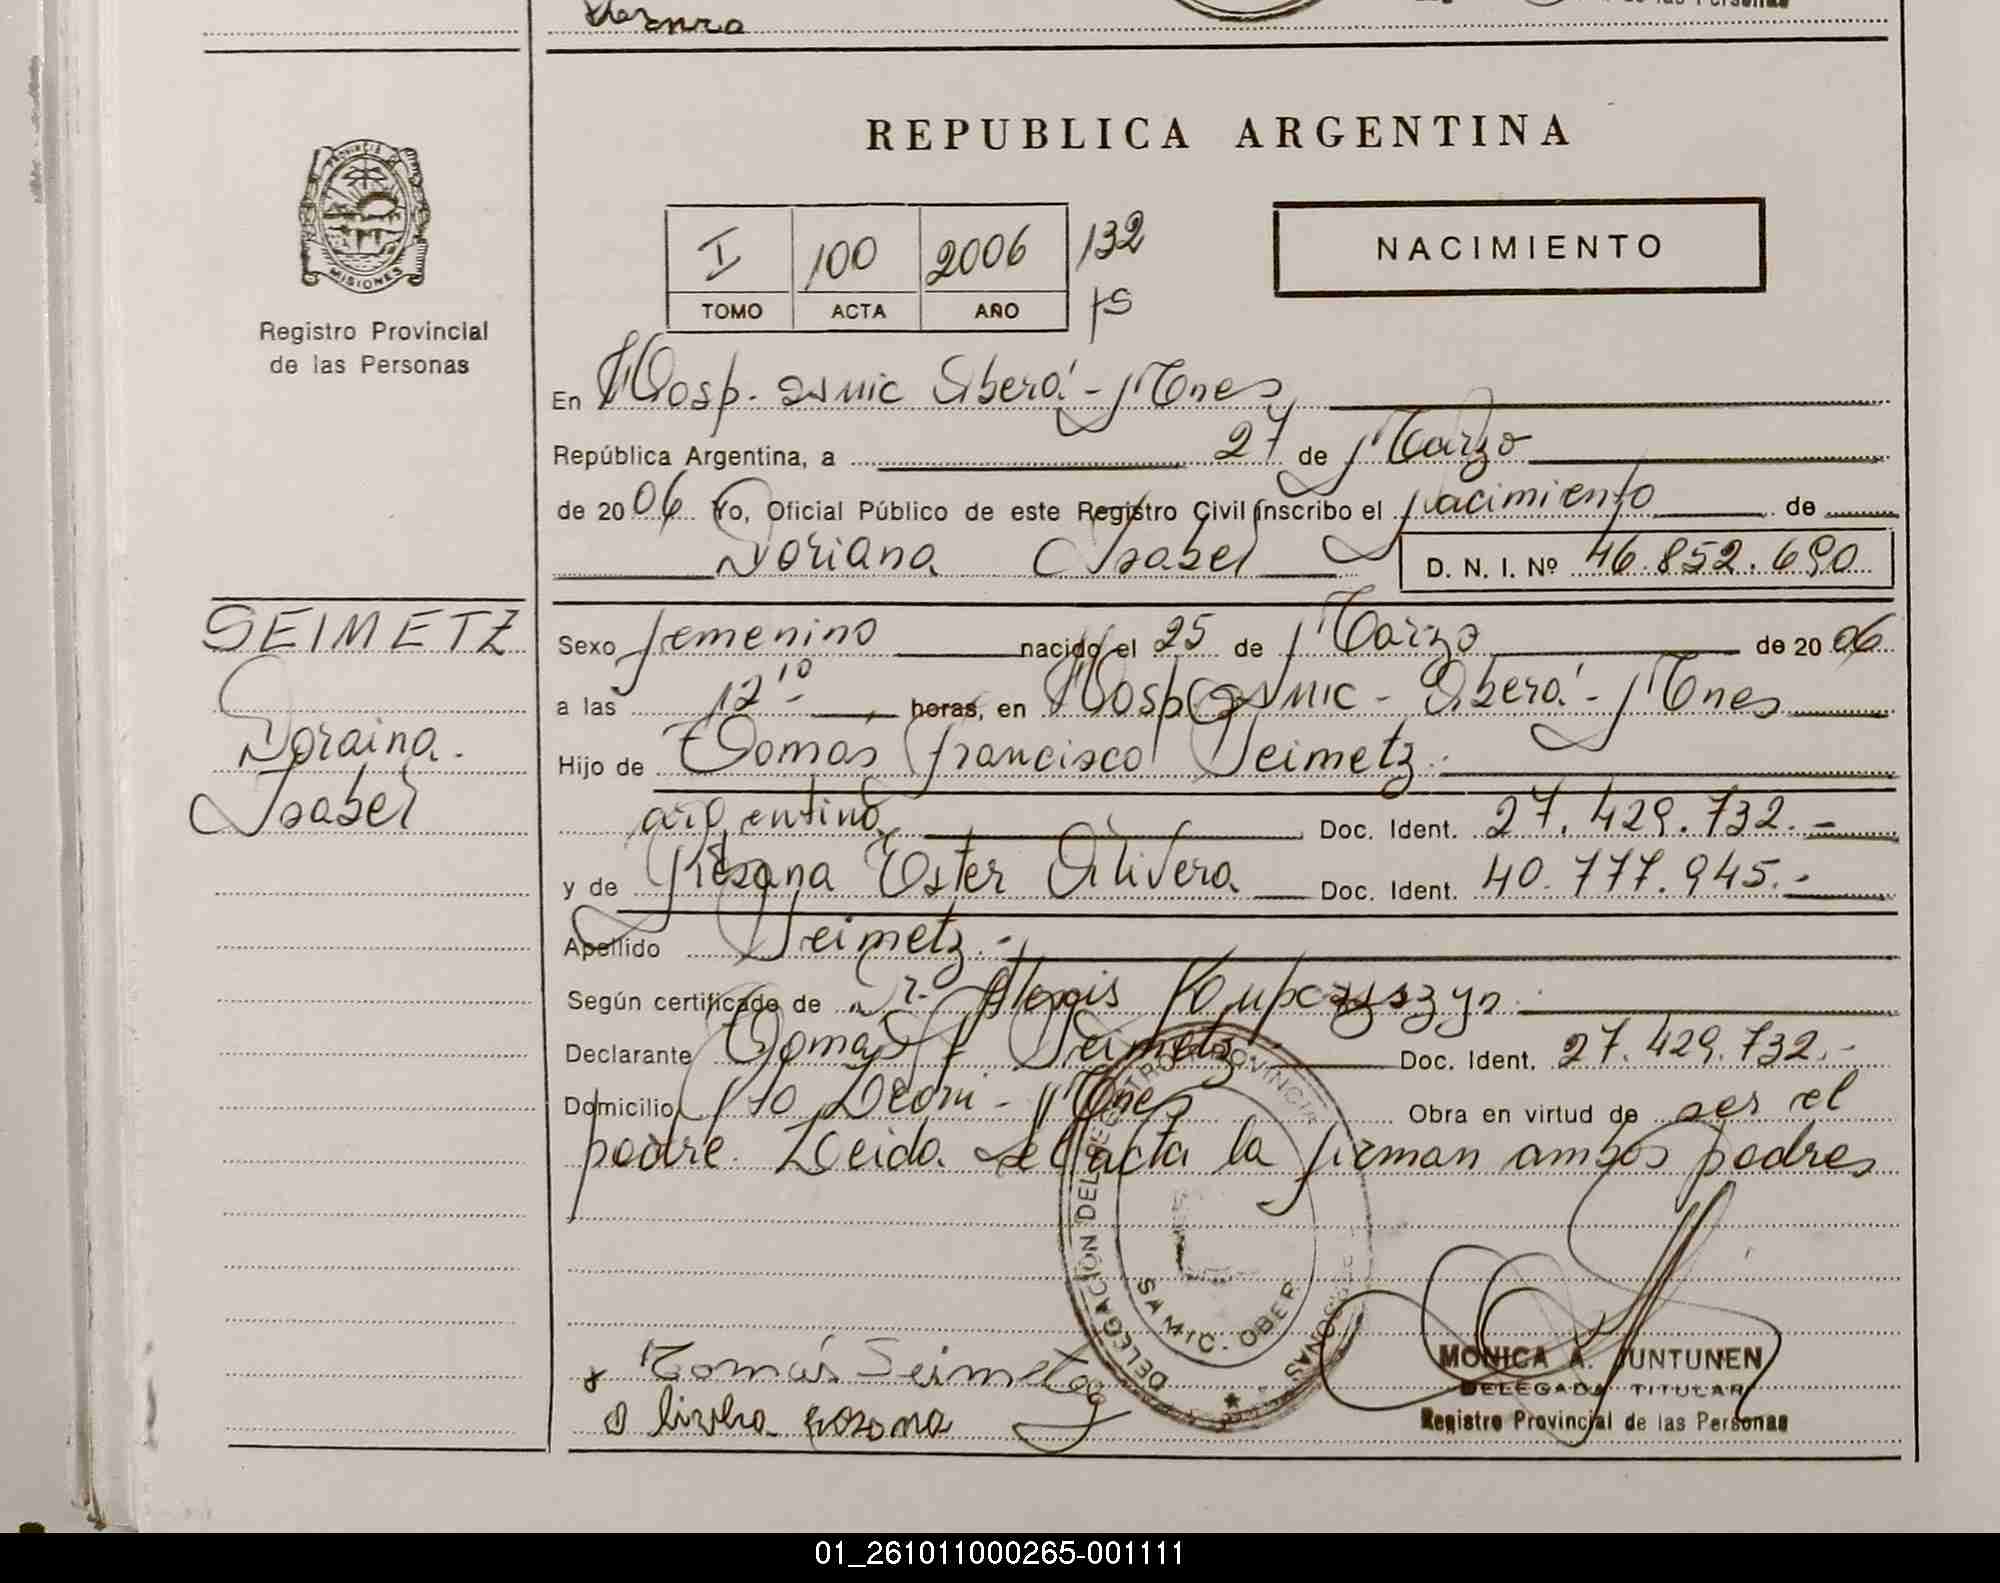 REPUBLICA ARGENTINA
PROVINCIA DE
MISIONES
Registro Provincial
de las Personas
I 100 2006 132
TOMO ACTA AÑO fs
NACIMIENTO
En Hosp. Samic Oberá - Mnes
República Argentina, a 27 de Marzo
de 2006 Yo, Oficial Público de este Registro Civil inscribo el nacimiento de
Doriana Isabel D. N. I. Nº 46.852.690
SEIMETZ
Doraina.
Isabel
Sexo femenino nacido el 25 de Marzo de 2006
a las 12 10 horas, en Hosp Samic - Oberá - Mnes
Hijo de Tomas Francisco Seimetz.
argentino Doc. Ident. 27.429.732.-
y de Rosana Ester Olivera Doc. Ident. 40.777.945.-
Apellido Seimetz.-
Según certificado de Dr. Alexis
Declarante Tomás F Seimetz Doc. Ident. 27.429.732.-
Domicilio Pto Leoni - Mnes Obra en virtud de ser el
padre. Leida el acta la firman ambos padres
DELEGACION DEL REGISTRO PROVINCIAL
PERSONAS
SAMIC. OBER
x Tomás Seimetz
MONICA A. JUNTUNEN
DELEGADA TITULAR
Registro Provincial de las Personas
01_261011000265-001111